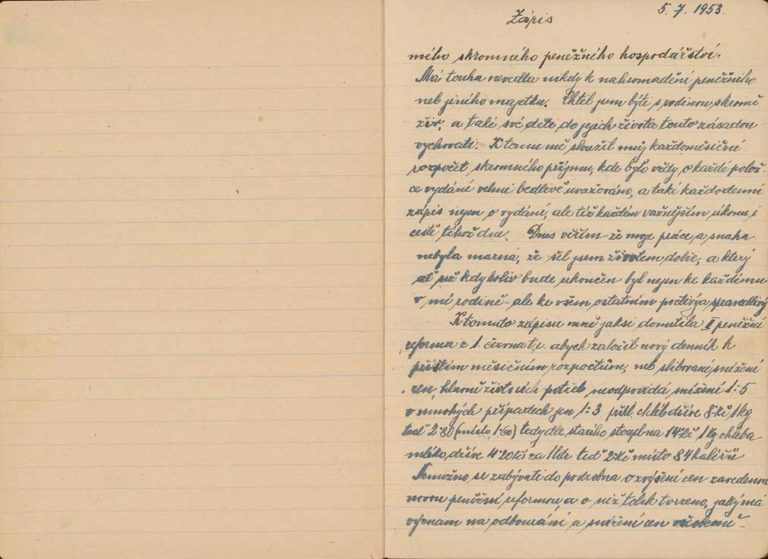 5. 7. 1953.
Zápis
mého skromného peněžního hospodářství.
Má touha nevedla nikdy k nahromadění peněžního
neb jiného majetku. Chtěl jsem býti s rodinou skromě
živ, a také své děti do jejich života touto zásadou
vychovati. K tomu mě sloužil můj každoměsíční
rozpočet skromného příjmu, kde bylo vždy o každé polož-
ce vydání velmi bedlivě uvažováno, a také každodenní
zápis nejen o vydání, ale též každém važnějším úkonu i
cestě téhož dne. Dnes věřím že moje práce a snaha
nebyla marná, že šel jsem životem dobře, a který
ať už kdykoliv bude ukončen byl nejen ke každému
v mé rodině ale ke všem ostatním spravedlivý
K tomuto zápisu mně jaksi donutila II peněžní
reforma z 1 června t.r. abych založil nový denník k
příštím měsíčním rozpočtům, neb slibované snížení
cen, hlavně životních potřeb neodpovídá snížení 1:5
v mnohých případech jen 1:3 příkl. chléb dříve 8 kč 1 kg
teď 2·80 (místo 1·60) tedy dle starého stoupl na 14 Kč 1 kg chleba
mléko, dříve 4·20 kč za 1 ltr teď 2 kč místo 84 haléřů
Nemožno se zabývati do podrobna o zvýšení cen zavedenou
novou peněžní reformou a o níž tolik tvrzeno, jaký má
význam na odbourání a snížení cen všeobecně.